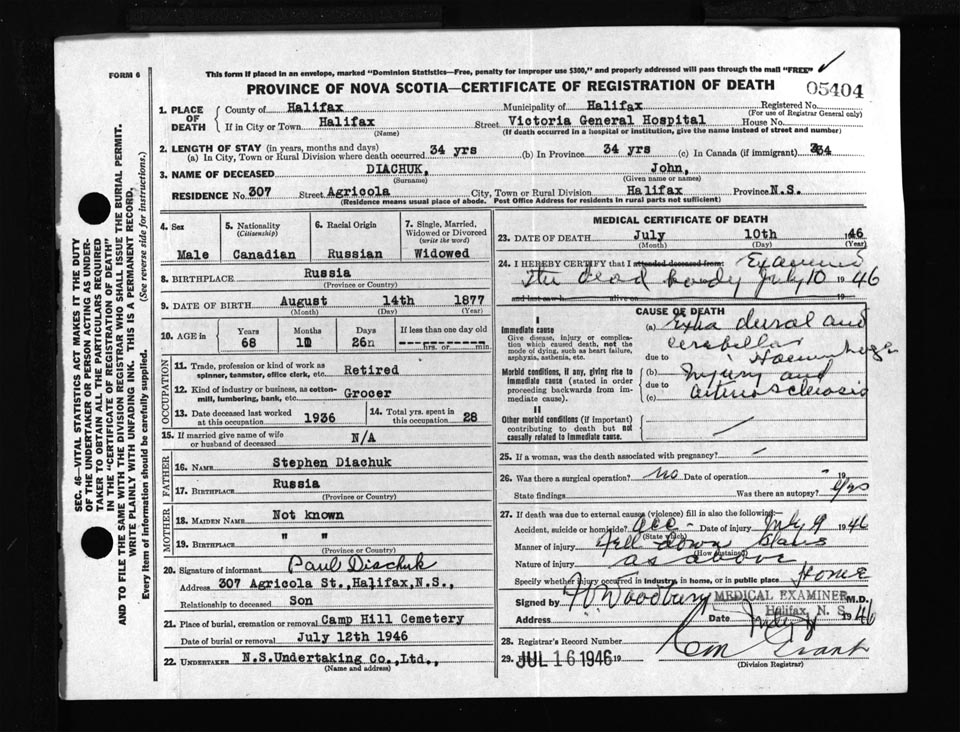 FORM 6
This form if placed in an envelope, marked "Dominion Statistics—Free, penalty for improper use $300," and properly addressed will pass through the mail "FREE"
PROVINCE OF NOVA SCOTIA—CERTIFICATE OF REGISTRATION OF DEATH
05404
1. PLACE OF DEATH County of Halifax Municipality of Halifax Registered No.
(For use of Registrar General only)
If in City or Town Halifax Street Victoria General Hospital House No.
(Name) (If death occurred in a hospital or institution, give the name instead of street and number)
2. LENGTH OF STAY (in years, months and days)
(a) In City, Town or Rural Division where death occurred 34 yrs (b) In Province 34 yrs (c) In Canada (if immigrant) 34
3. NAME OF DECEASED DIACHUK, John,
(Surname) (Given name or names)
RESIDENCE No. 307 Street Agricola City, Town or Rural Division Halifax Province N.S.
(Residence means usual place of abode. Post Office Address for residents in rural parts not sufficient)
4. Sex
Male
5. Nationality
(Citizenship)
Canadian
6. Racial Origin
Russian
7. Single, Married, Widowed or Divorced
(write the word)
Widowed
8. BIRTHPLACE Russia
(Province or Country)
9. DATE OF BIRTH August 14th 1877
(Month) (Day) (Year)
10. AGE in Years Months Days If less than one day old
68 26 hrs. or min.
OCCUPATION
11. Trade, profession or kind of work as spinner, teamster, office clerk, etc. Retired
12. Kind of industry or business, as cotton-mill, lumbering, bank, etc. Grocer
13. Date deceased last worked at this occupation 1936
14. Total yrs. spent in this occupation 28
15. If married give name of wife or husband of deceased N/A
FATHER
16. NAME Stephen Diachuk
17. BIRTHPLACE Russia
(Province or Country)
MOTHER
18. MAIDEN NAME Not known
19. BIRTHPLACE " "
(Province or Country)
20. Signature of informant Paul Diachuk
Address 307 Agricola St., Halifax, N.S.,
Relationship to deceased Son
21. Place of burial, cremation or removal Camp Hill Cemetery
Date of burial or removal July 12th 1946
22. UNDERTAKER N.S.Undertaking Co.,Ltd.,
(Name and address)
MEDICAL CERTIFICATE OF DEATH
23. DATE OF DEATH July 10th 1946
(Month) (Day) (Year)
24. I HEREBY CERTIFY that I attended deceased from Examined
the dead body July 10 1946
and last saw h alive on 19
CAUSE OF DEATH
I
Immediate cause
Give disease, injury or complication which caused death, not the mode of dying, such as heart failure, asphyxia, asthenia, etc.
(a) Extra dural and
cerebellar
due to Haemorrhage
Morbid conditions, if any, giving rise to immediate cause (stated in order proceeding backwards from immediate cause).
(b) injury and
due to
(c) arterio sclerosis
II
Other morbid conditions (if important) contributing to death but not causally related to immediate cause.
25. If a woman, was the death associated with pregnancy?
26. Was there a surgical operation? no Date of operation 19
State findings Was there an autopsy? yes
27. If death was due to external causes (violence) fill in also the following:—
Accident, suicide or homicide? acc - Date of injury July 9 1946
(State which)
Manner of injury Fell down stairs
(How sustained)
Nature of injury as above
Specify whether injury occurred in industry, in home, or in public place Home
Signed by Woodbury MEDICAL EXAMINER M.D.
Halifax, N. S.
Address Date July 1946
28. Registrar's Record Number
29. JUL 16 1946 19 Grant
(Division Registrar)
SEC. 46—VITAL STATISTICS ACT MAKES IT THE DUTY
OF THE UNDERTAKER OR PERSON ACTING AS UNDER-
TAKER TO OBTAIN ALL THE PARTICULARS REQUIRED
IN THE "CERTIFICATE OF REGISTRATION OF DEATH"
AND TO FILE THE SAME WITH THE DIVISION REGISTRAR WHO SHALL ISSUE THE BURIAL PERMIT.
WRITE PLAINLY WITH UNFADING INK. THIS IS A PERMANENT RECORD.
Every item of information should be carefully supplied. (See reverse side for instructions.)